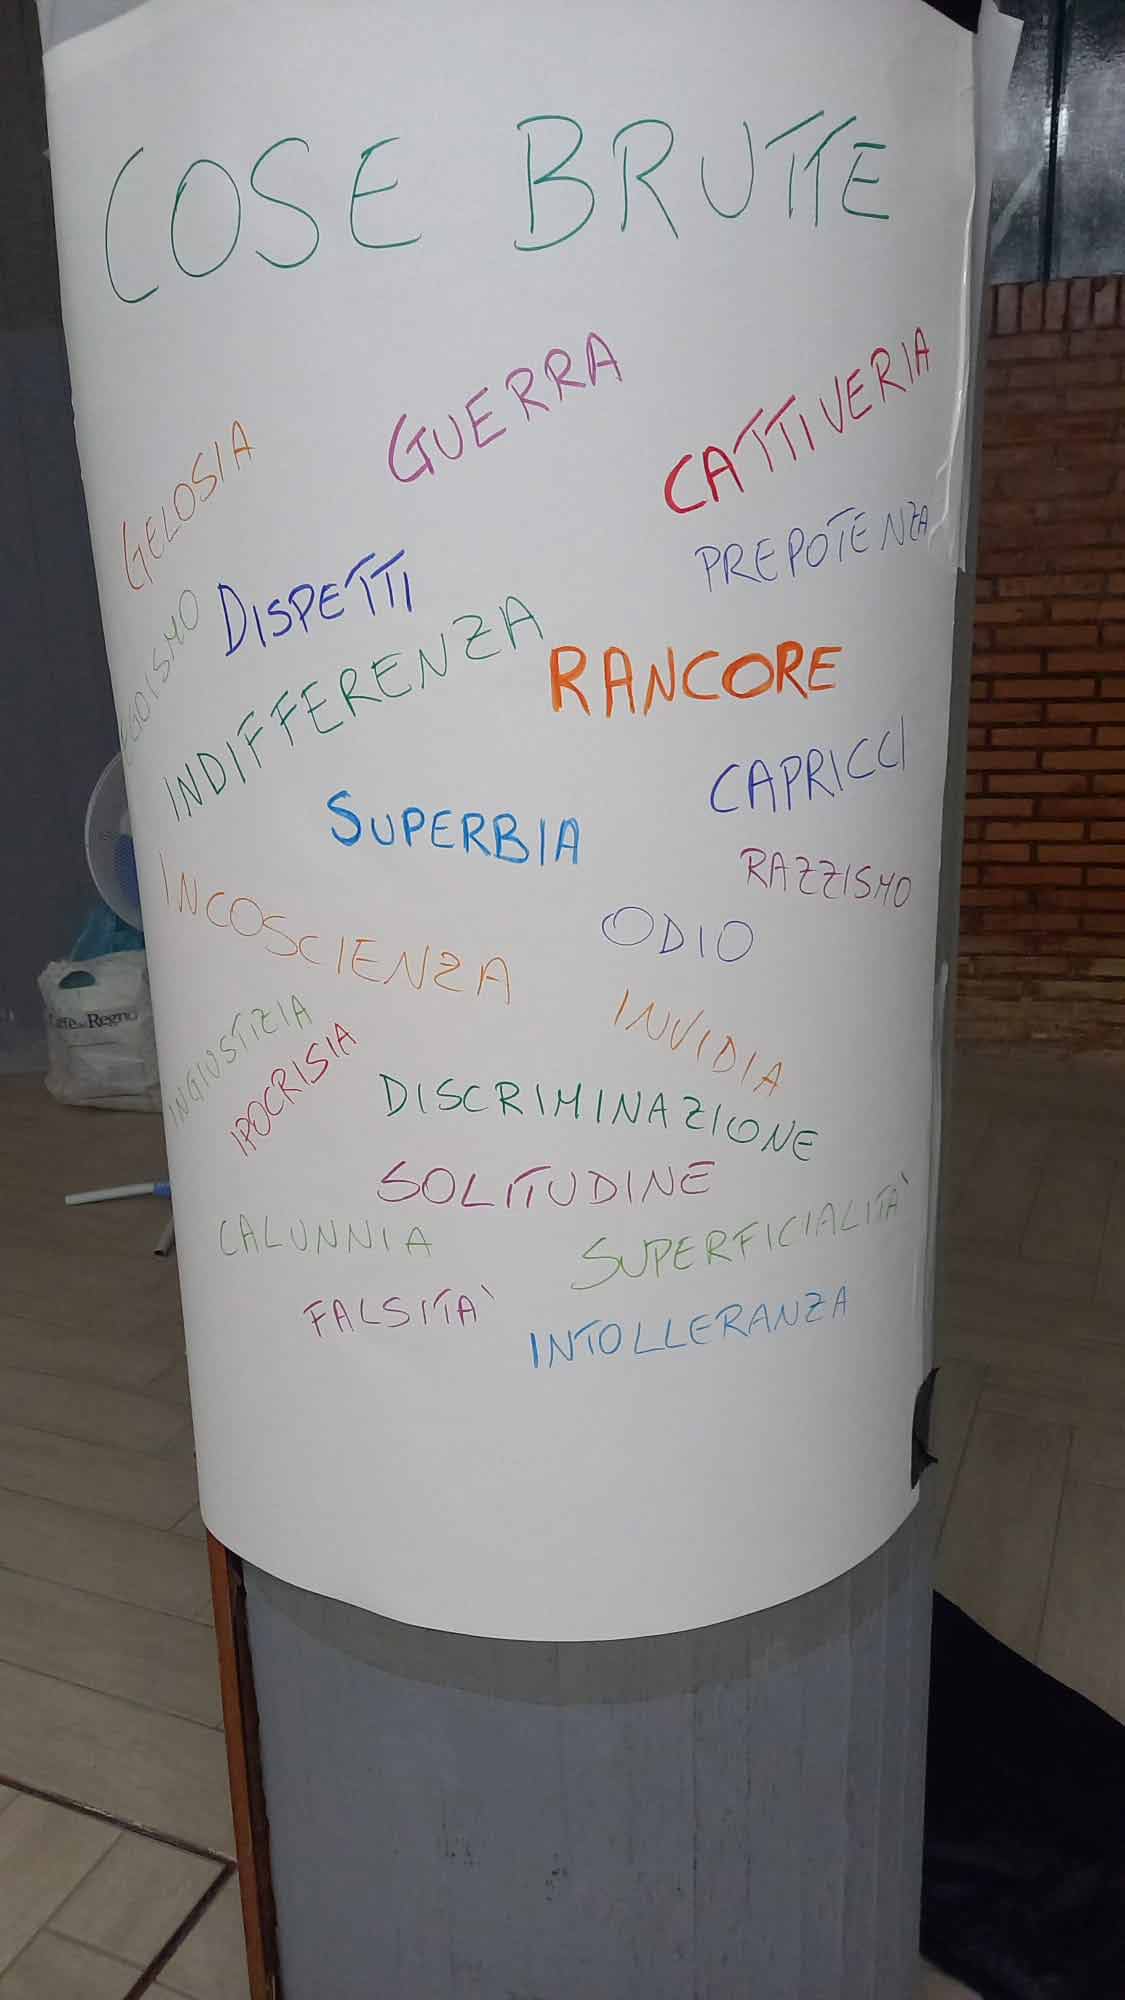 COSE BRUTTE
GUERRA
CATTIVERIA
GELOSIA
PREPOTENZA
DISPETTI
EGOISMO
INDIFFERENZA
RANCORE
CAPRICCI
SUPERBIA
RAZZISMO
INCOSCIENZA
ODIO
INVIDIA
INGIUSTIZIA
IPOCRISIA
DISCRIMINAZIONE
SOLITUDINE
CALUNNIA
SUPERFICIALITA'
FALSITA'
INTOLLERANZA
Regno